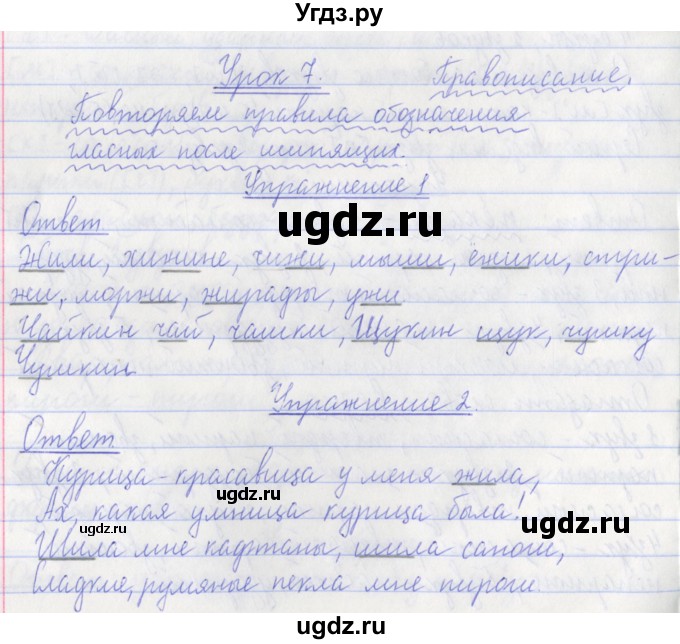 Угдз.ру
Урок 7. Правописание.
Повторяем правила обозначения
гласных после шипящих.
Упражнение 1
ugdz.ru
Ответ
Жили, хижине, чижи, мыши, ёжики, стри-
жи, моржи, жирафы, ужи
Чайкин чай, чашки, Щукин щук, чушку
Чушкин
Упражнение 2.
Ответ
Курица-красавица у меня жила,
ugdz.ru
Ах, какая умница курица была!
ugdz.ru
ugdz.ru
Шила мне кафтаны, шила сапоги,
Сладкие, румяные пекла мне пироги